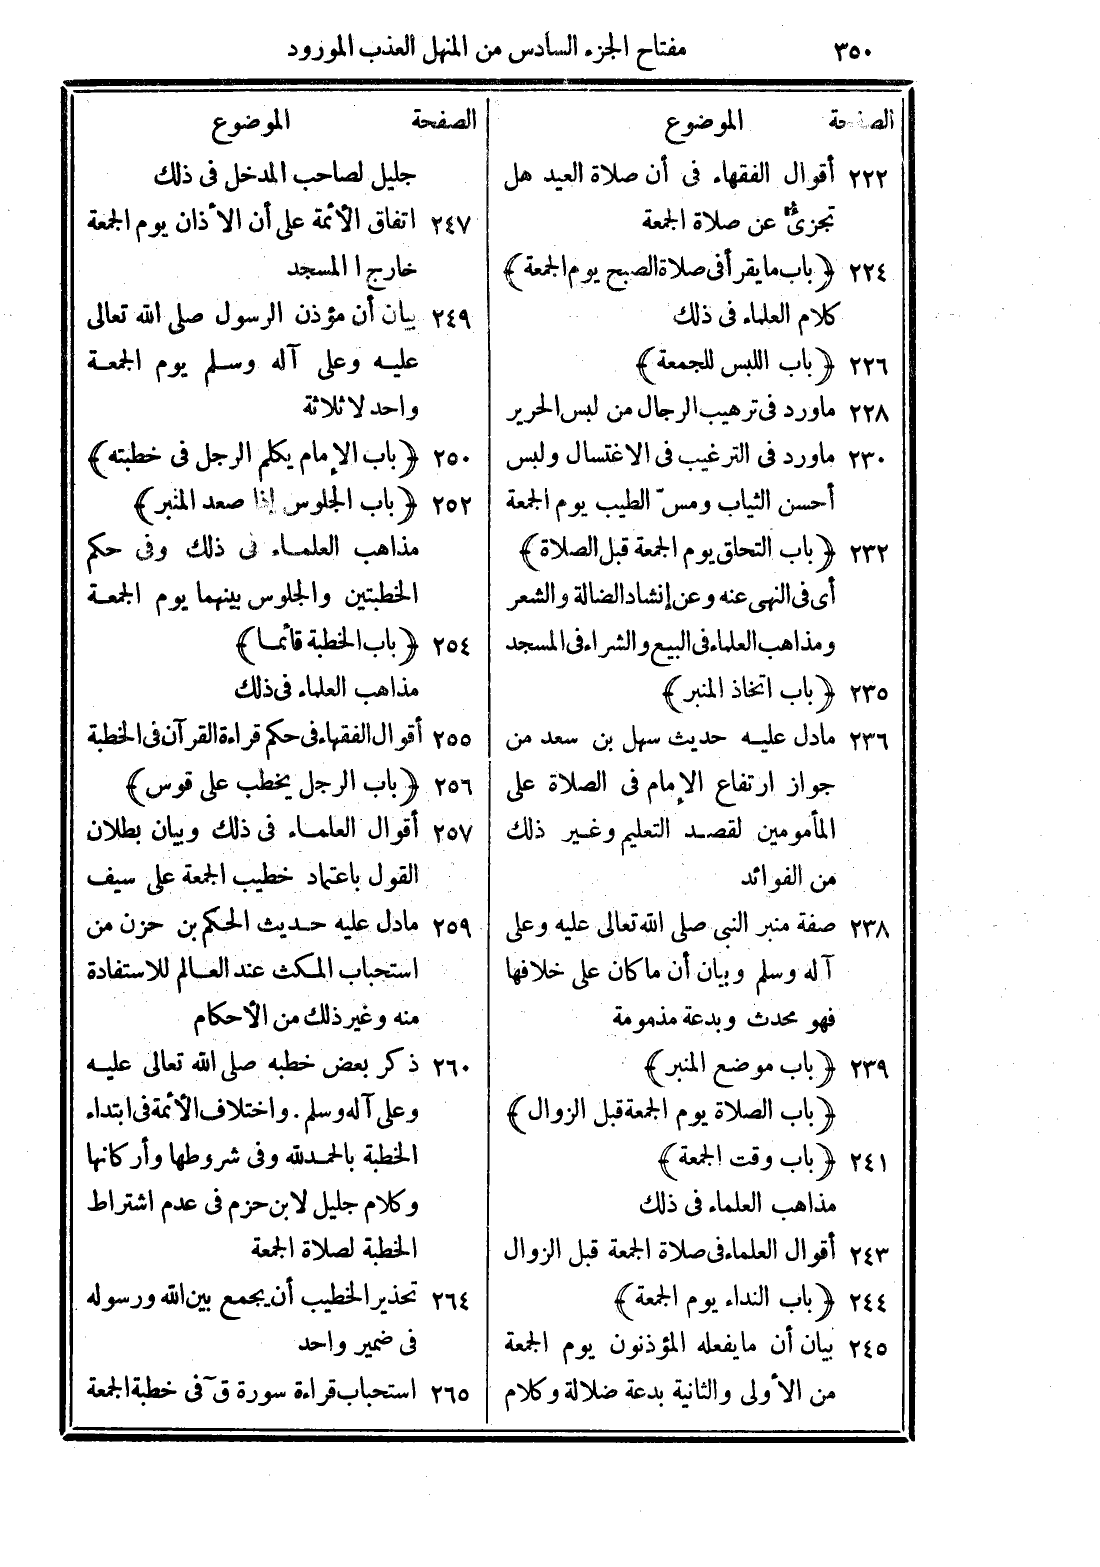 ٣٥٠ مفتاح الجزء السادس من المنهل العذب المورود
الصفحة الموضوع
٢٢٢ أقوال الفقهاء فى أن صلاة العيد هل
تجزئ عن صلاة الجمعة
٢٢٤ ﴿ باب ما يقرأ فى صلاة الصبح يوم الجمعة ﴾
كلام العلماء فى ذلك
٢٢٦ ﴿ باب اللبس للجمعة ﴾
٢٢٨ ماورد فى ترهيب الرجال من لبس الحرير
٢٣٠ ماورد فى الترغيب فى الاغتسال ولبس
أحسن الثياب ومسّ الطيب يوم الجمعة
٢٣٢ ﴿ باب التحلق يوم الجمعة قبل الصلاة ﴾
أى فى النهى عنه وعن إنشاد الضالة والشعر
ومذاهب العلماء فى البيع والشراء فى المسجد
٢٣٥ ﴿ باب اتخاذ المنبر ﴾
٢٣٦ مادل عليه حديث سهل بن سعد من
جواز ارتفاع الإمام فى الصلاة على
المأمومين لقصد التعليم وغير ذلك
من الفوائد
٢٣٨ صفة منبر النبى صلى الله تعالى عليه وعلى
آله وسلم وبيان أن ماكان على خلافها
فهو محدث وبدعة مذمومة
٢٣٩ ﴿ باب موضع المنبر ﴾
﴿ باب الصلاة يوم الجمعة قبل الزوال ﴾
٢٤١ ﴿ باب وقت الجمعة ﴾
مذاهب العلماء فى ذلك
٢٤٣ أقوال العلماء فى صلاة الجمعة قبل الزوال
٢٤٤ ﴿ باب النداء يوم الجمعة ﴾
٢٤٥ بيان أن مايفعله المؤذنون يوم الجمعة
من الأولى والثانية بدعة ضلالة وكلام
الصفحة الموضوع
جليل لصاحب المدخل فى ذلك
٢٤٧ اتفاق الأئمة على أن الأذان يوم الجمعة
خارج المسجد
٢٤٩ بيان أن مؤذن الرسول صلى الله تعالى
عليه وعلى آله وسلم يوم الجمعة
واحد لا ثلاثة
٢٥٠ ﴿ باب الإمام يكلم الرجل فى خطبته ﴾
٢٥٢ ﴿ باب الجلوس إذا صعد المنبر ﴾
مذاهب العلماء فى ذلك وفى حكم
الخطبتين والجلوس بينهما يوم الجمعة
٢٥٤ ﴿ باب الخطبة قائما ﴾
مذاهب العلماء فى ذلك
٢٥٥ أقوال الفقهاء فى حكم قراءة القرآن فى الخطبة
٢٥٦ ﴿ باب الرجل يخطب على قوس ﴾
٢٥٧ أقوال العلماء فى ذلك وبيان بطلان
القول باعتماد خطيب الجمعة على سيف
٢٥٩ مادل عليه حديث الحكم بن حزن من
استحباب المكث عند العالم للاستفادة
منه وغير ذلك من الأحكام
٢٦٠ ذكر بعض خطبه صلى الله تعالى عليه
وعلى آله وسلم . واختلاف الأئمة فى ابتداء
الخطبة بالحمد لله وفى شروطها وأركانها
وكلام جليل لابن حزم فى عدم اشتراط
الخطبة لصلاة الجمعة
٢٦٤ تحذير الخطيب أن يجمع بين الله ورسوله
فى ضمير واحد
٢٦٥ استحباب قراءة سورة قٓ فى خطبة الجمعة